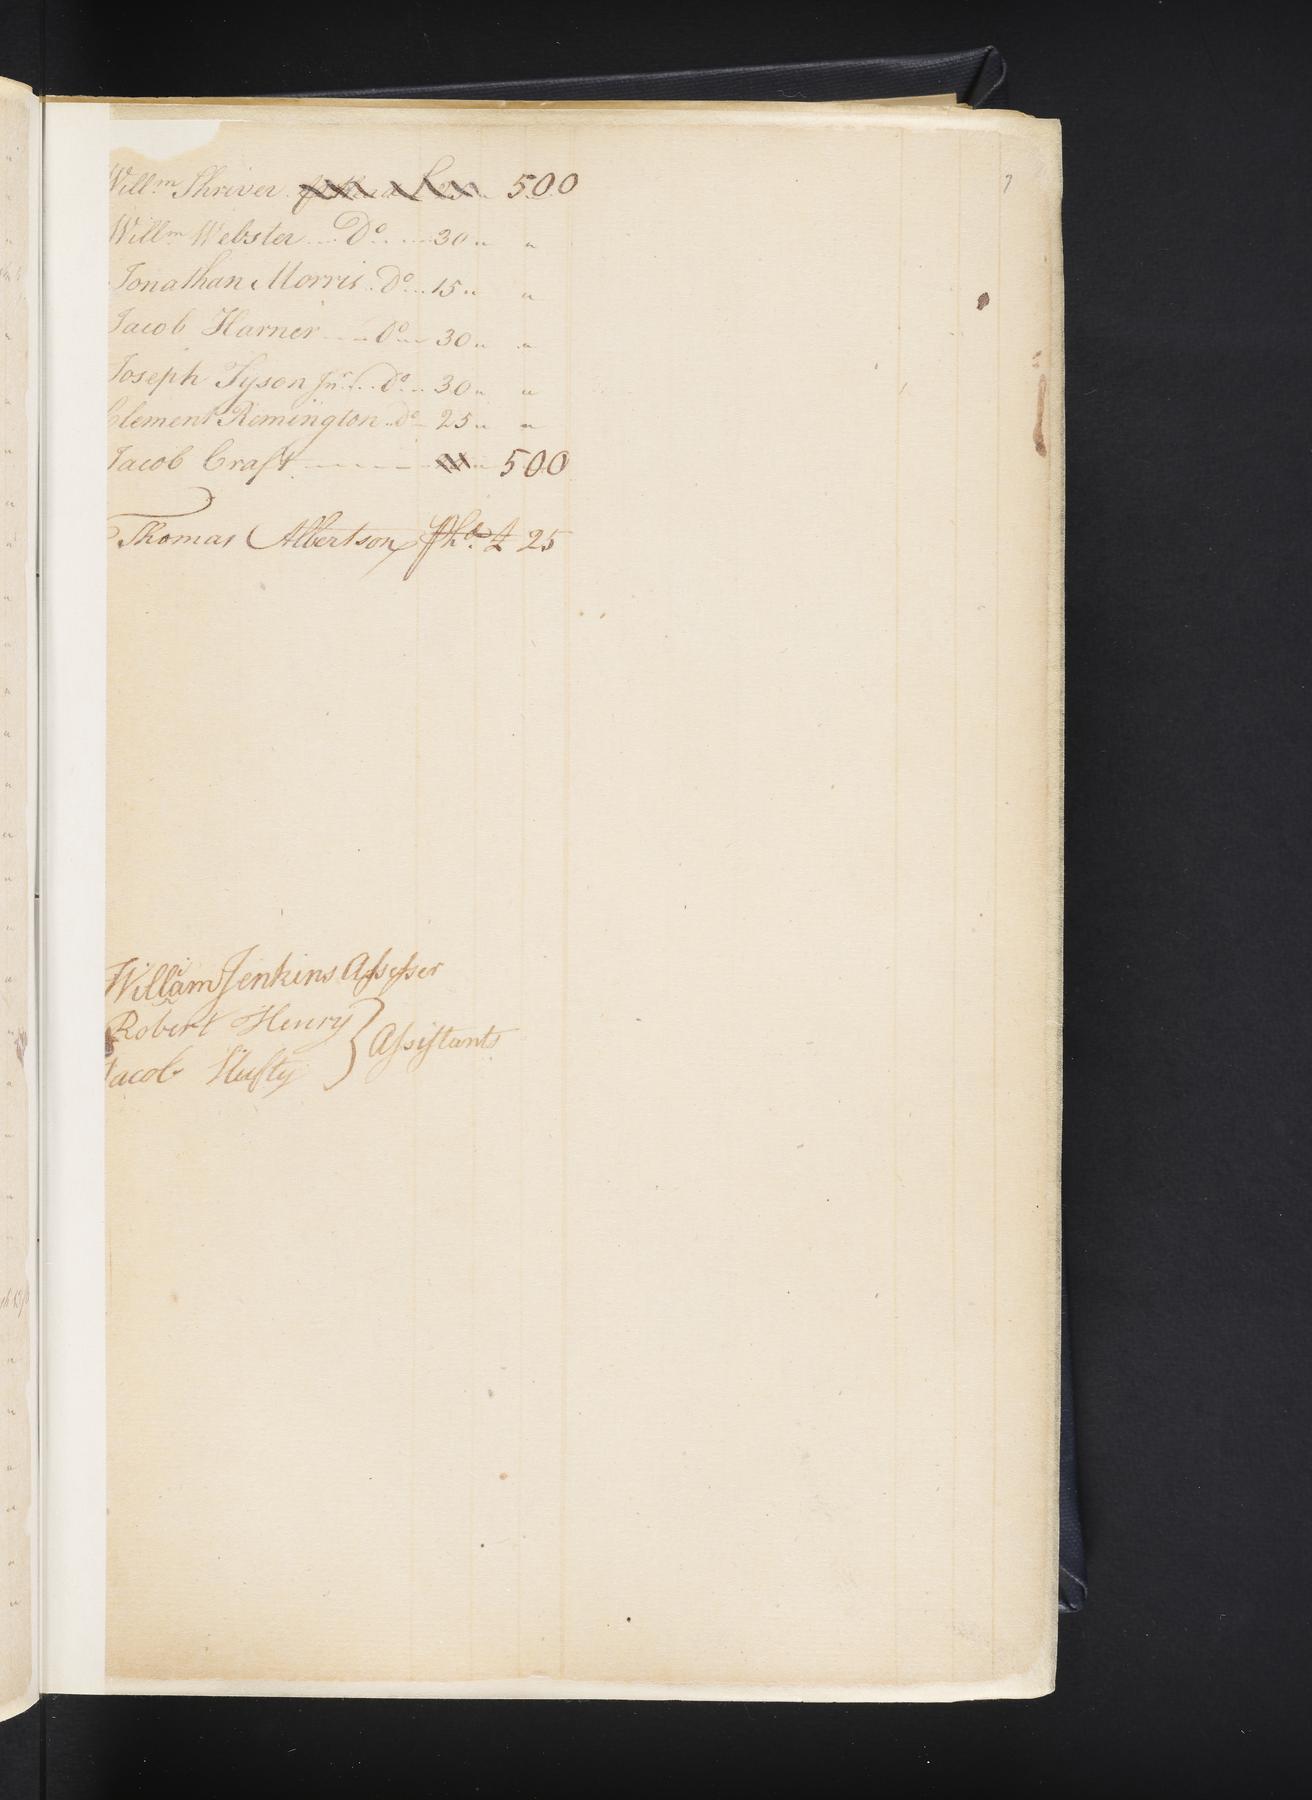 Willm Shriver 500
Willm Webster Do 30 " "
Jonathan Morris Do 15 " "
Jacob Harner Do 30 " "
Joseph Tyson Junr Do 30 " "
Clement Remington Do 25 " "
Jacob Craft 500
Thomas Albertson £ 25
William Jenkins Assesser
Robert Henry
Assistants
Jacob Hufty